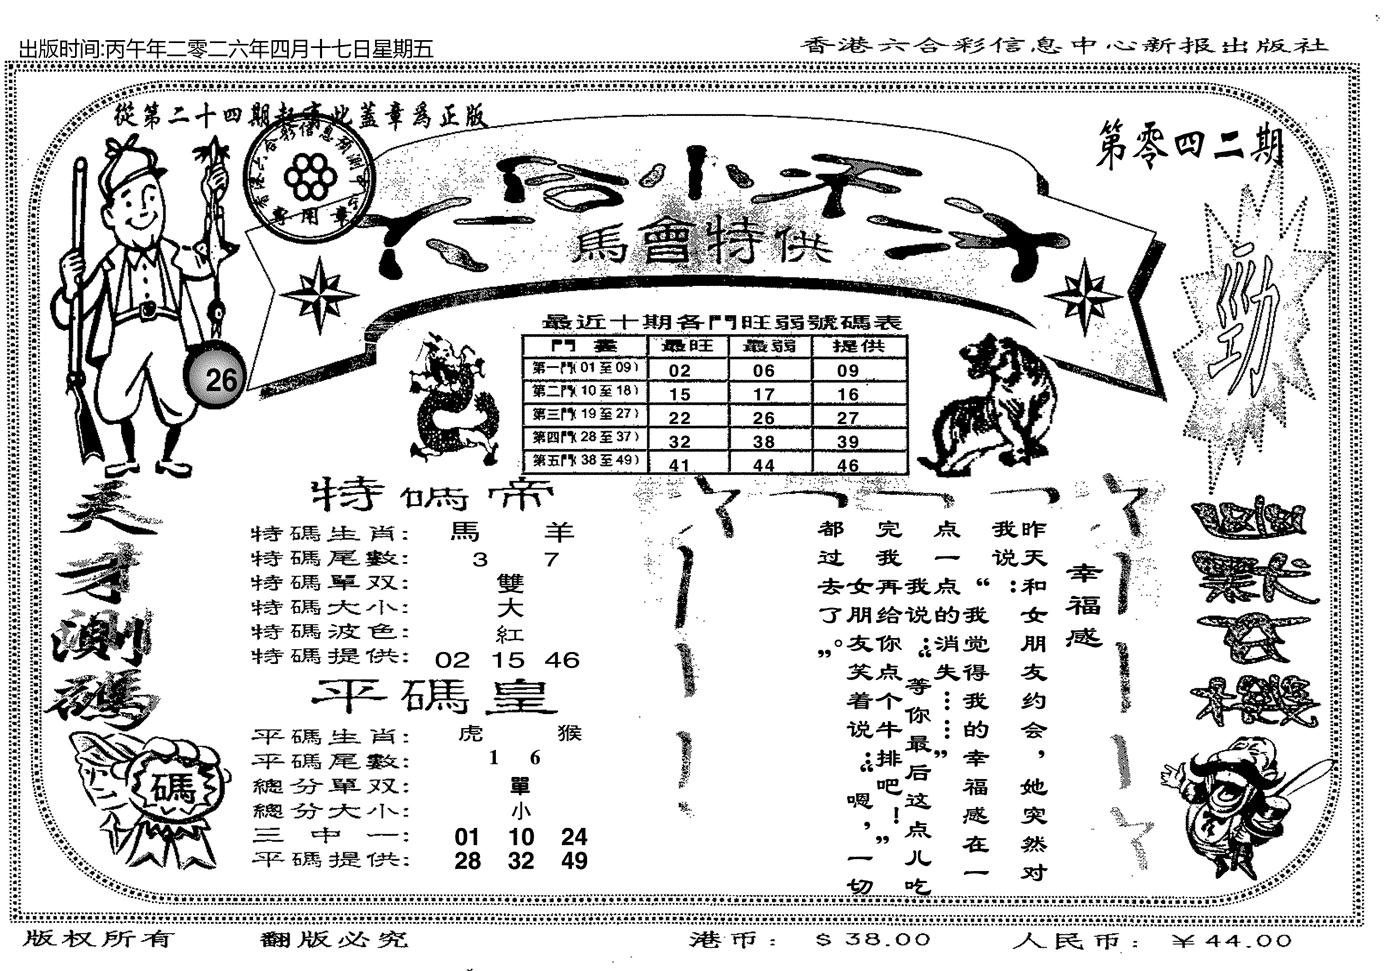 出版时间:丙午年二零二六年四月十七日星期五
香港六合彩信息中心新报出版社
從第二十四期起憲此蓋章爲正版
第零四二期
專用章
六合小不六
馬會特供
26
勁
最近十期各門旺弱號碼表
門 最旺 最弱 提供
第一門(01至09) 02 06 09
第二門(10至18) 15 17 16
第三門(19至27) 22 26 27
第四門(28至37) 32 38 39
第五門(38至49) 41 44 46
天才測碼
碼
特碼帝
特碼生肖: 馬 羊
特碼尾數: 3 7
特碼單双: 雙
特碼大小: 大
特碼波色: 紅
特碼提供: 02 15 46
平碼皇
平碼生肖: 虎 猴
平碼尾數: 1 6
總分單双: 單
總分大小: 小
三中一: 01 10 24
平碼提供: 28 32 49
幸福感
昨天和女朋友约会，她突然对
我说：“我觉得我的幸福感在一
点一点的消失……”
我说：“等你最后这点儿吃
完我再给你点个牛排吧！”
女朋友笑着说：“嗯，一切
都过去了。”
版权所有
翻版必究
港币: $38.00
人民币: ￥44.00